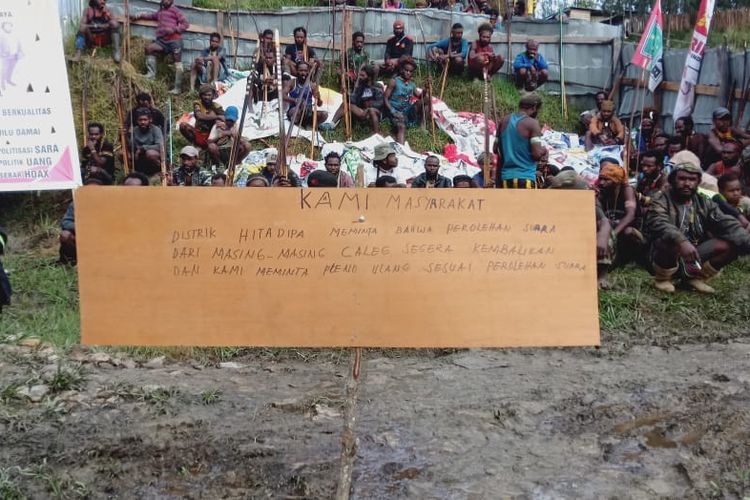 AYA
BERKUALITAS
ILU DAMAI
LITISASI SARA
POLITIK UANG
SEBAR HOAX
KAMI MASYARAKAT
DISTRIK HITADIPA MEMINTA BAHWA PEROLEHAN SUARA
DARI MASING-MASING CALEG SEGERA KEMBALIKAN
DAN KAMI MEMINTA PLENO ULANG SESUAI PEROLEHAN SUARA